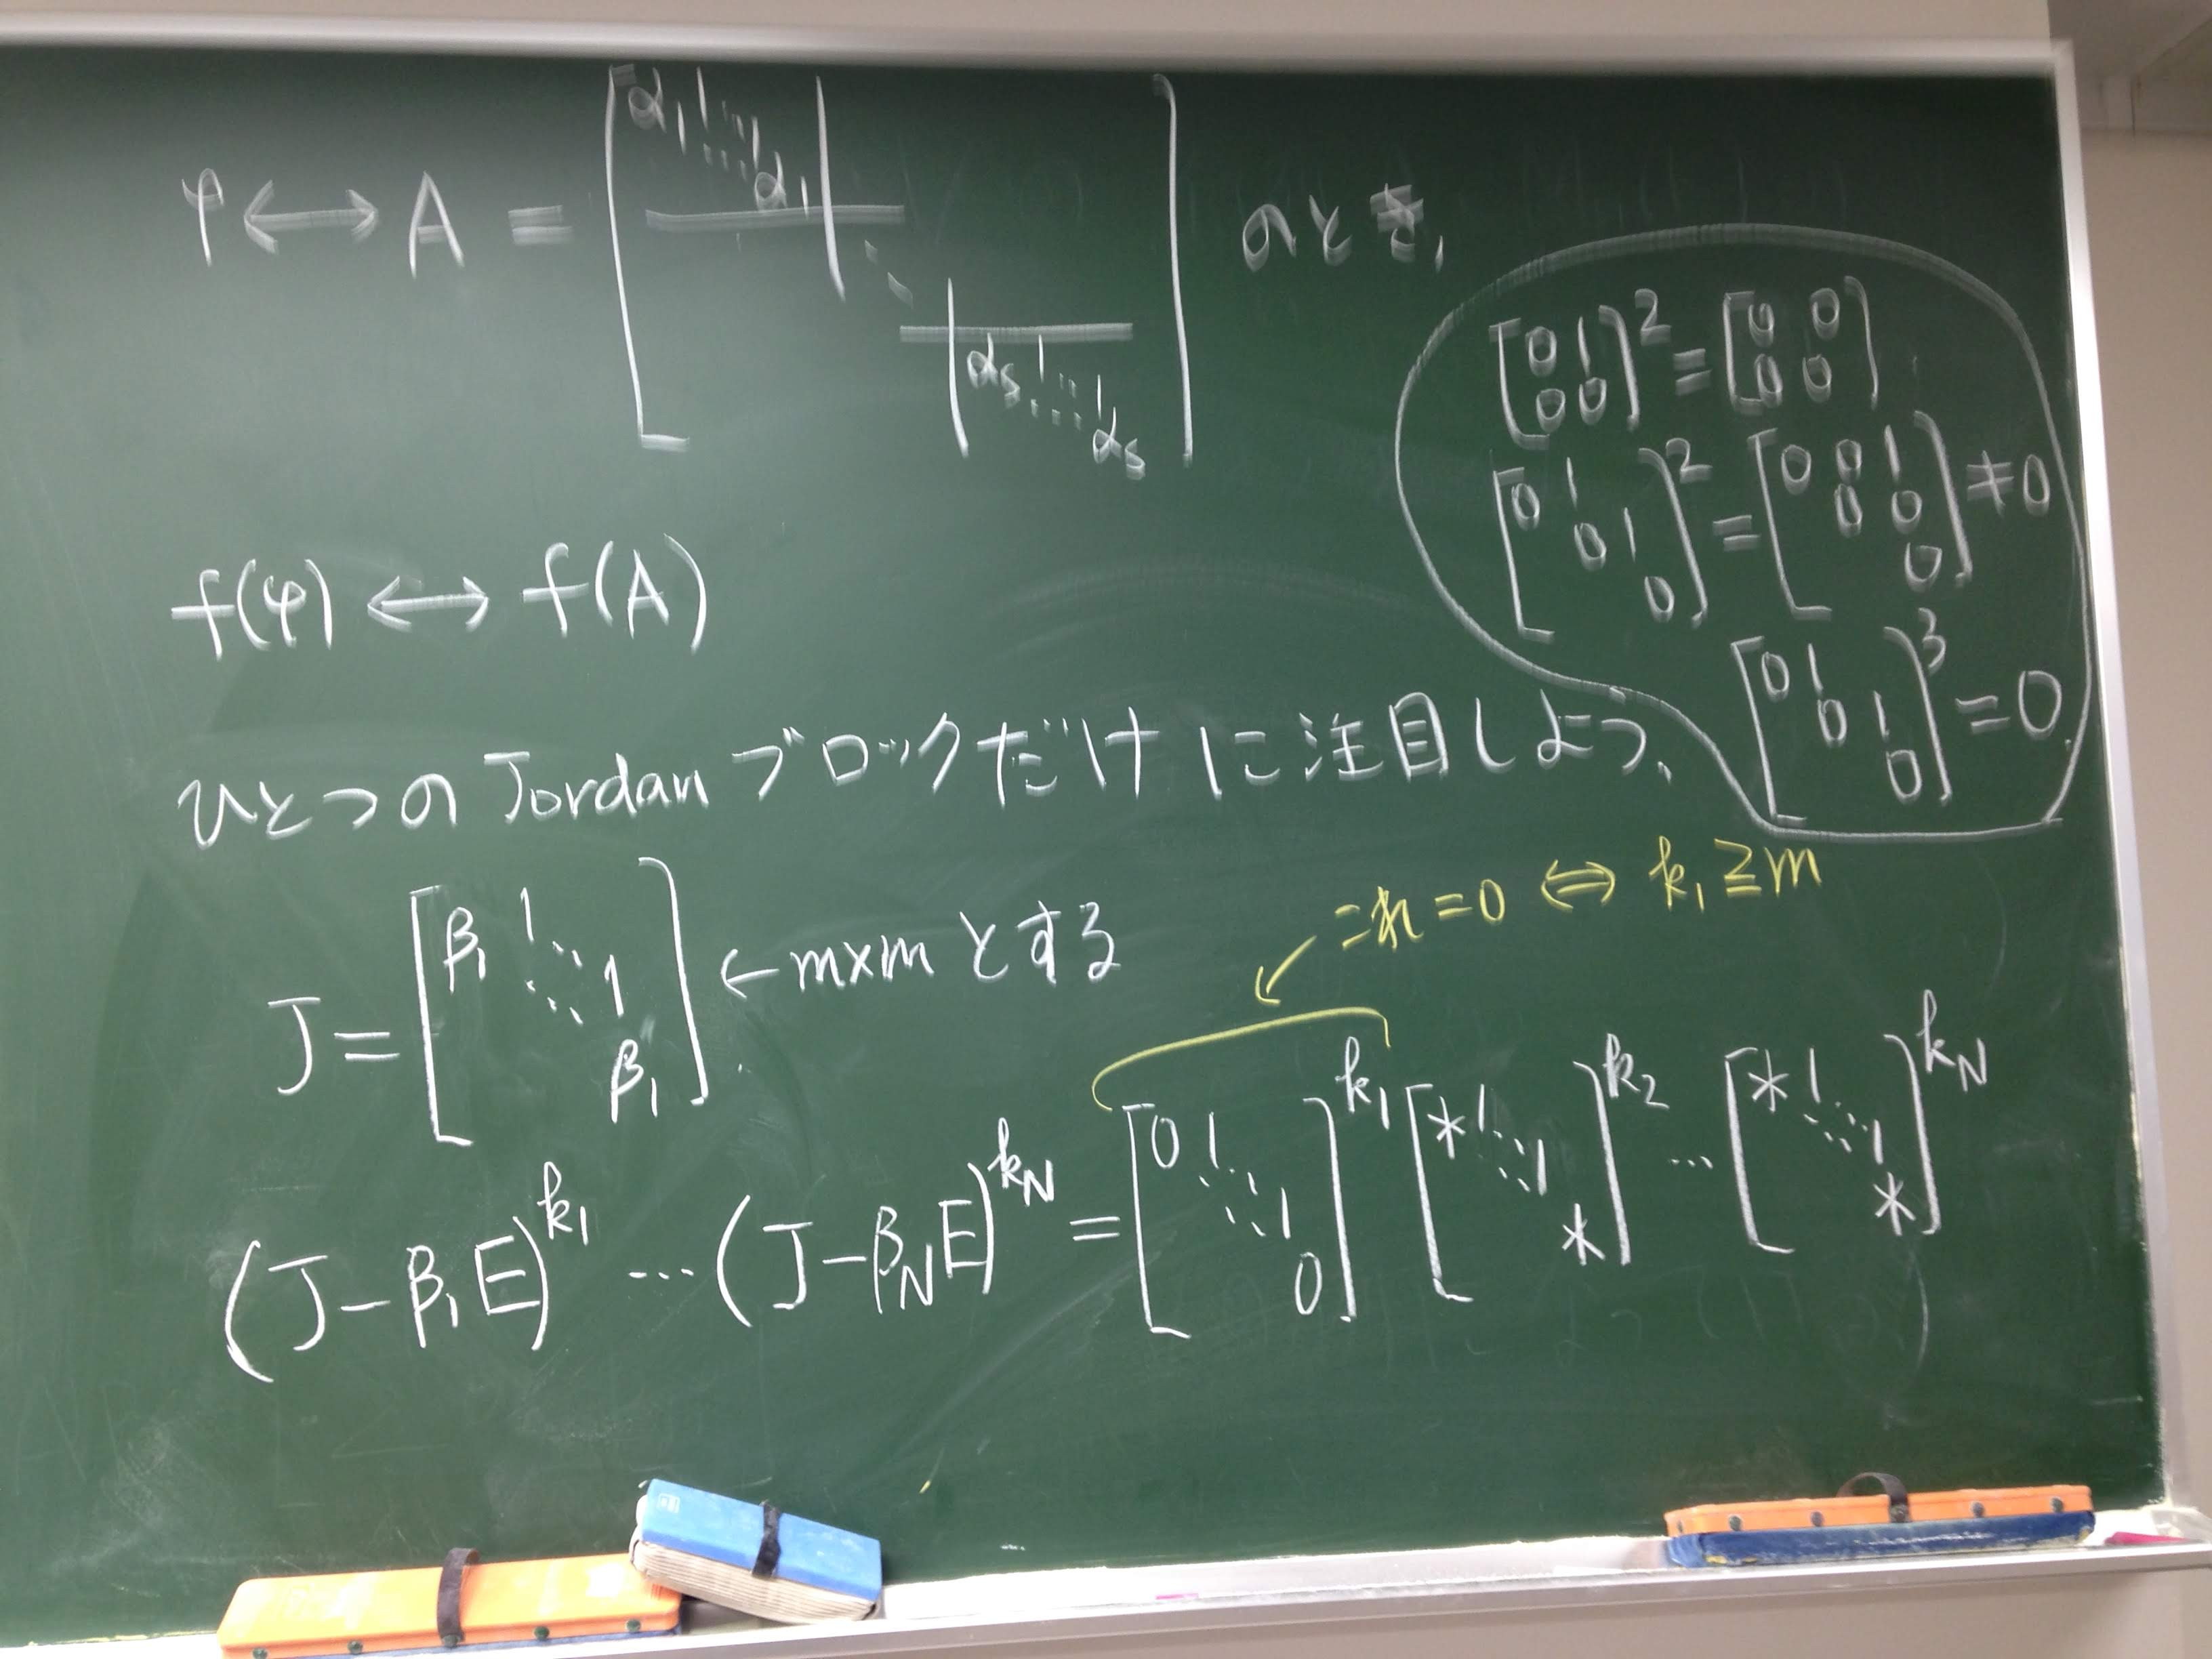 φ ↔ A = [ α₁ 1 ⋱ 1 α₁ | ⋱ | αs 1 ⋱ 1 αs ] のとき,
[0 1; 0 0]² = [0 0; 0 0]
[0 1; 0 1; 0]² = [0 0 1; 0 0; 0] ≠ 0
[0 1; 0 1; 0]³ = 0.
f(φ) ↔ f(A)
ひとつの Jordan ブロックだけに注目しよう.
これ = 0 ⇔ k₁ ≧ m
J = [ β₁ 1 ⋱ 1 β₁ ] ← m×m とする
(J − β₁E)^k₁ … (J − β_N E)^k_N = [ 0 1 ⋱ 1 0 ]^k₁ [ * 1 ⋱ 1 * ]^k₂ … [ * 1 ⋱ 1 * ]^k_N